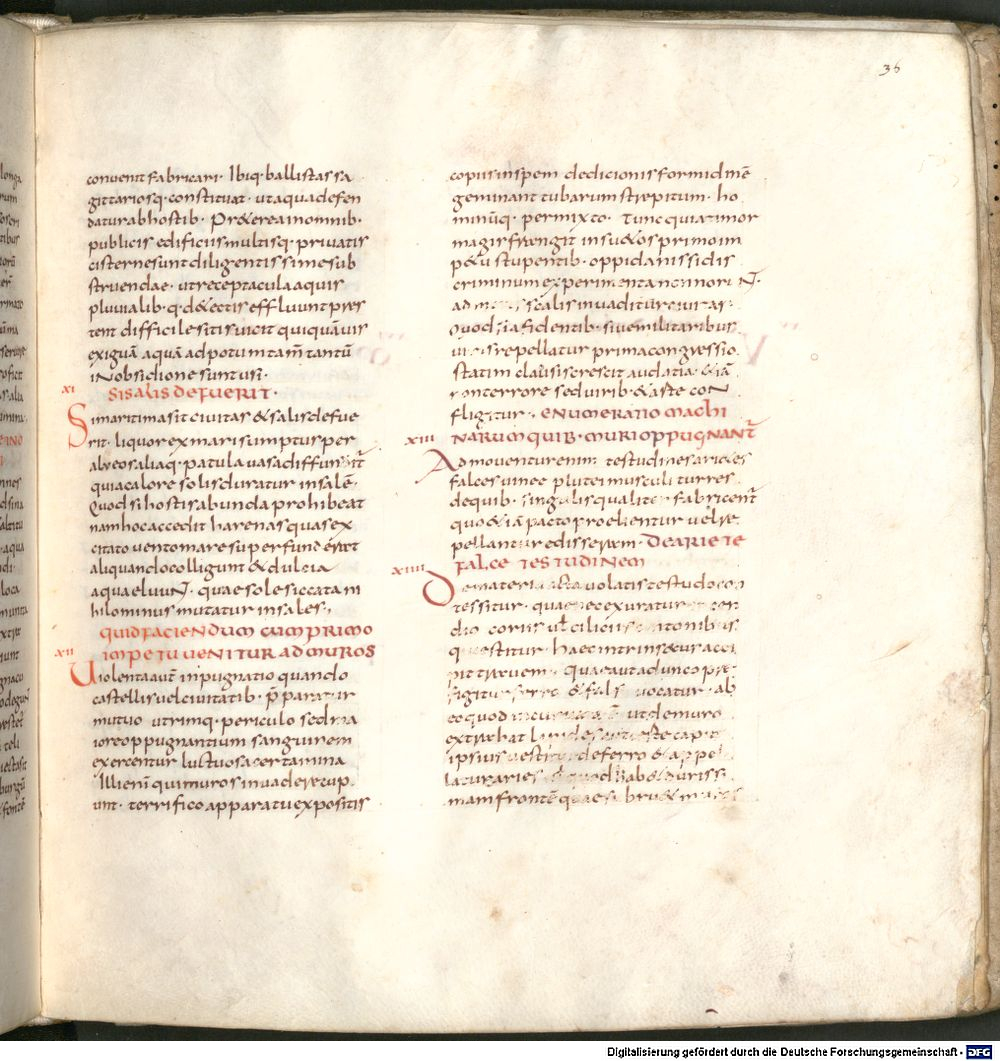 36
conuenit fabricari· Ibiq· ballistas sa
gittariosq· constituat· ut aqua defen
datur ab hostib· Pr&erea in omnib·
publicis edificiis multisq· priuatis
cisterne sunt diligentissime sub
struendae· ut receptacula aquis
pluuialib· q· d&ectis effluunt pres
tent difficile sitis uicit qui quāuis
exiguā aquā ad potum tam̄ tantū
in obsidione sunt usi·
xi
SI SALIS DEFUERIT·
Si maritima sit ciuitas & salis defue
rit· liquor ex mari sumptus per
alueos aliaq· patula uasa diffunditr̄
qui a calore solis duratur in salē·
Quod si hostis ab unda prohibeat
nam hoc accedit harenas quas ex
citato uento mare superfunderat
aliquando colligunt & dulcia
aqua eluuN̄· quae sole siccata ni
hilominus mutatur in sales·,
QUID FACIENDUM CUM PRIMO
xii
IMPETU VENITUR AD MUROS
Uiolenta aut̄ inpugnatio quando
castellis uel ciuitatib· p̄paratur
mutuo utrimq· periculo sed ma
iore oppugnantium sanguinem
exercentur luctuosa certamina
Illi enī qui muros inuadere cup
unt· terrifico apparatu expositis
copiis in spem dedicionis formidinē
geminant tubarum strepitum· ho
minūq· permixto· Tunc quia timor
magis frengit insu&os primo im
p&u stupentib· oppidanis si dis
criminum experimenta non noriN̄·
ad scalis inuaditur
Quod si a fidentib· siue militaribus
uiris repellatur prima congressio
statim clausis crescit audatia· & iā
non terrore sed uirib· & aste coN
fligitur·, ENUMERATIO MACHI
xiii
NARUM QUIB· MURI OPPUGNANT̄
Admouentur enim testudines ari&es
falces uinee plutei musculi turres
de quib· singulis qualiter fabricent̄
quo &iā pacto proelientur uel re
pellantur edisseram· DE ARIETE
xiiii
FALCE TESTUDINEM
De materia tabulatis testudo con
tessitur· quae ne exuratur incen
dio coriis uel̄ ciliciis centonibus
questitur· haec intrinsecur acci
pit trauem· Quae aut adunco pre
figitur ferro & falx uocatur· ab
eo quod incurua ut de muro
extrahat lapides caput
ipsius uestitur de ferro & appel
latur aries quod hab& duriss
mam frontē
Digitalisierung gefördert durch die Deutsche Forschungsgemeinschaft - DFG